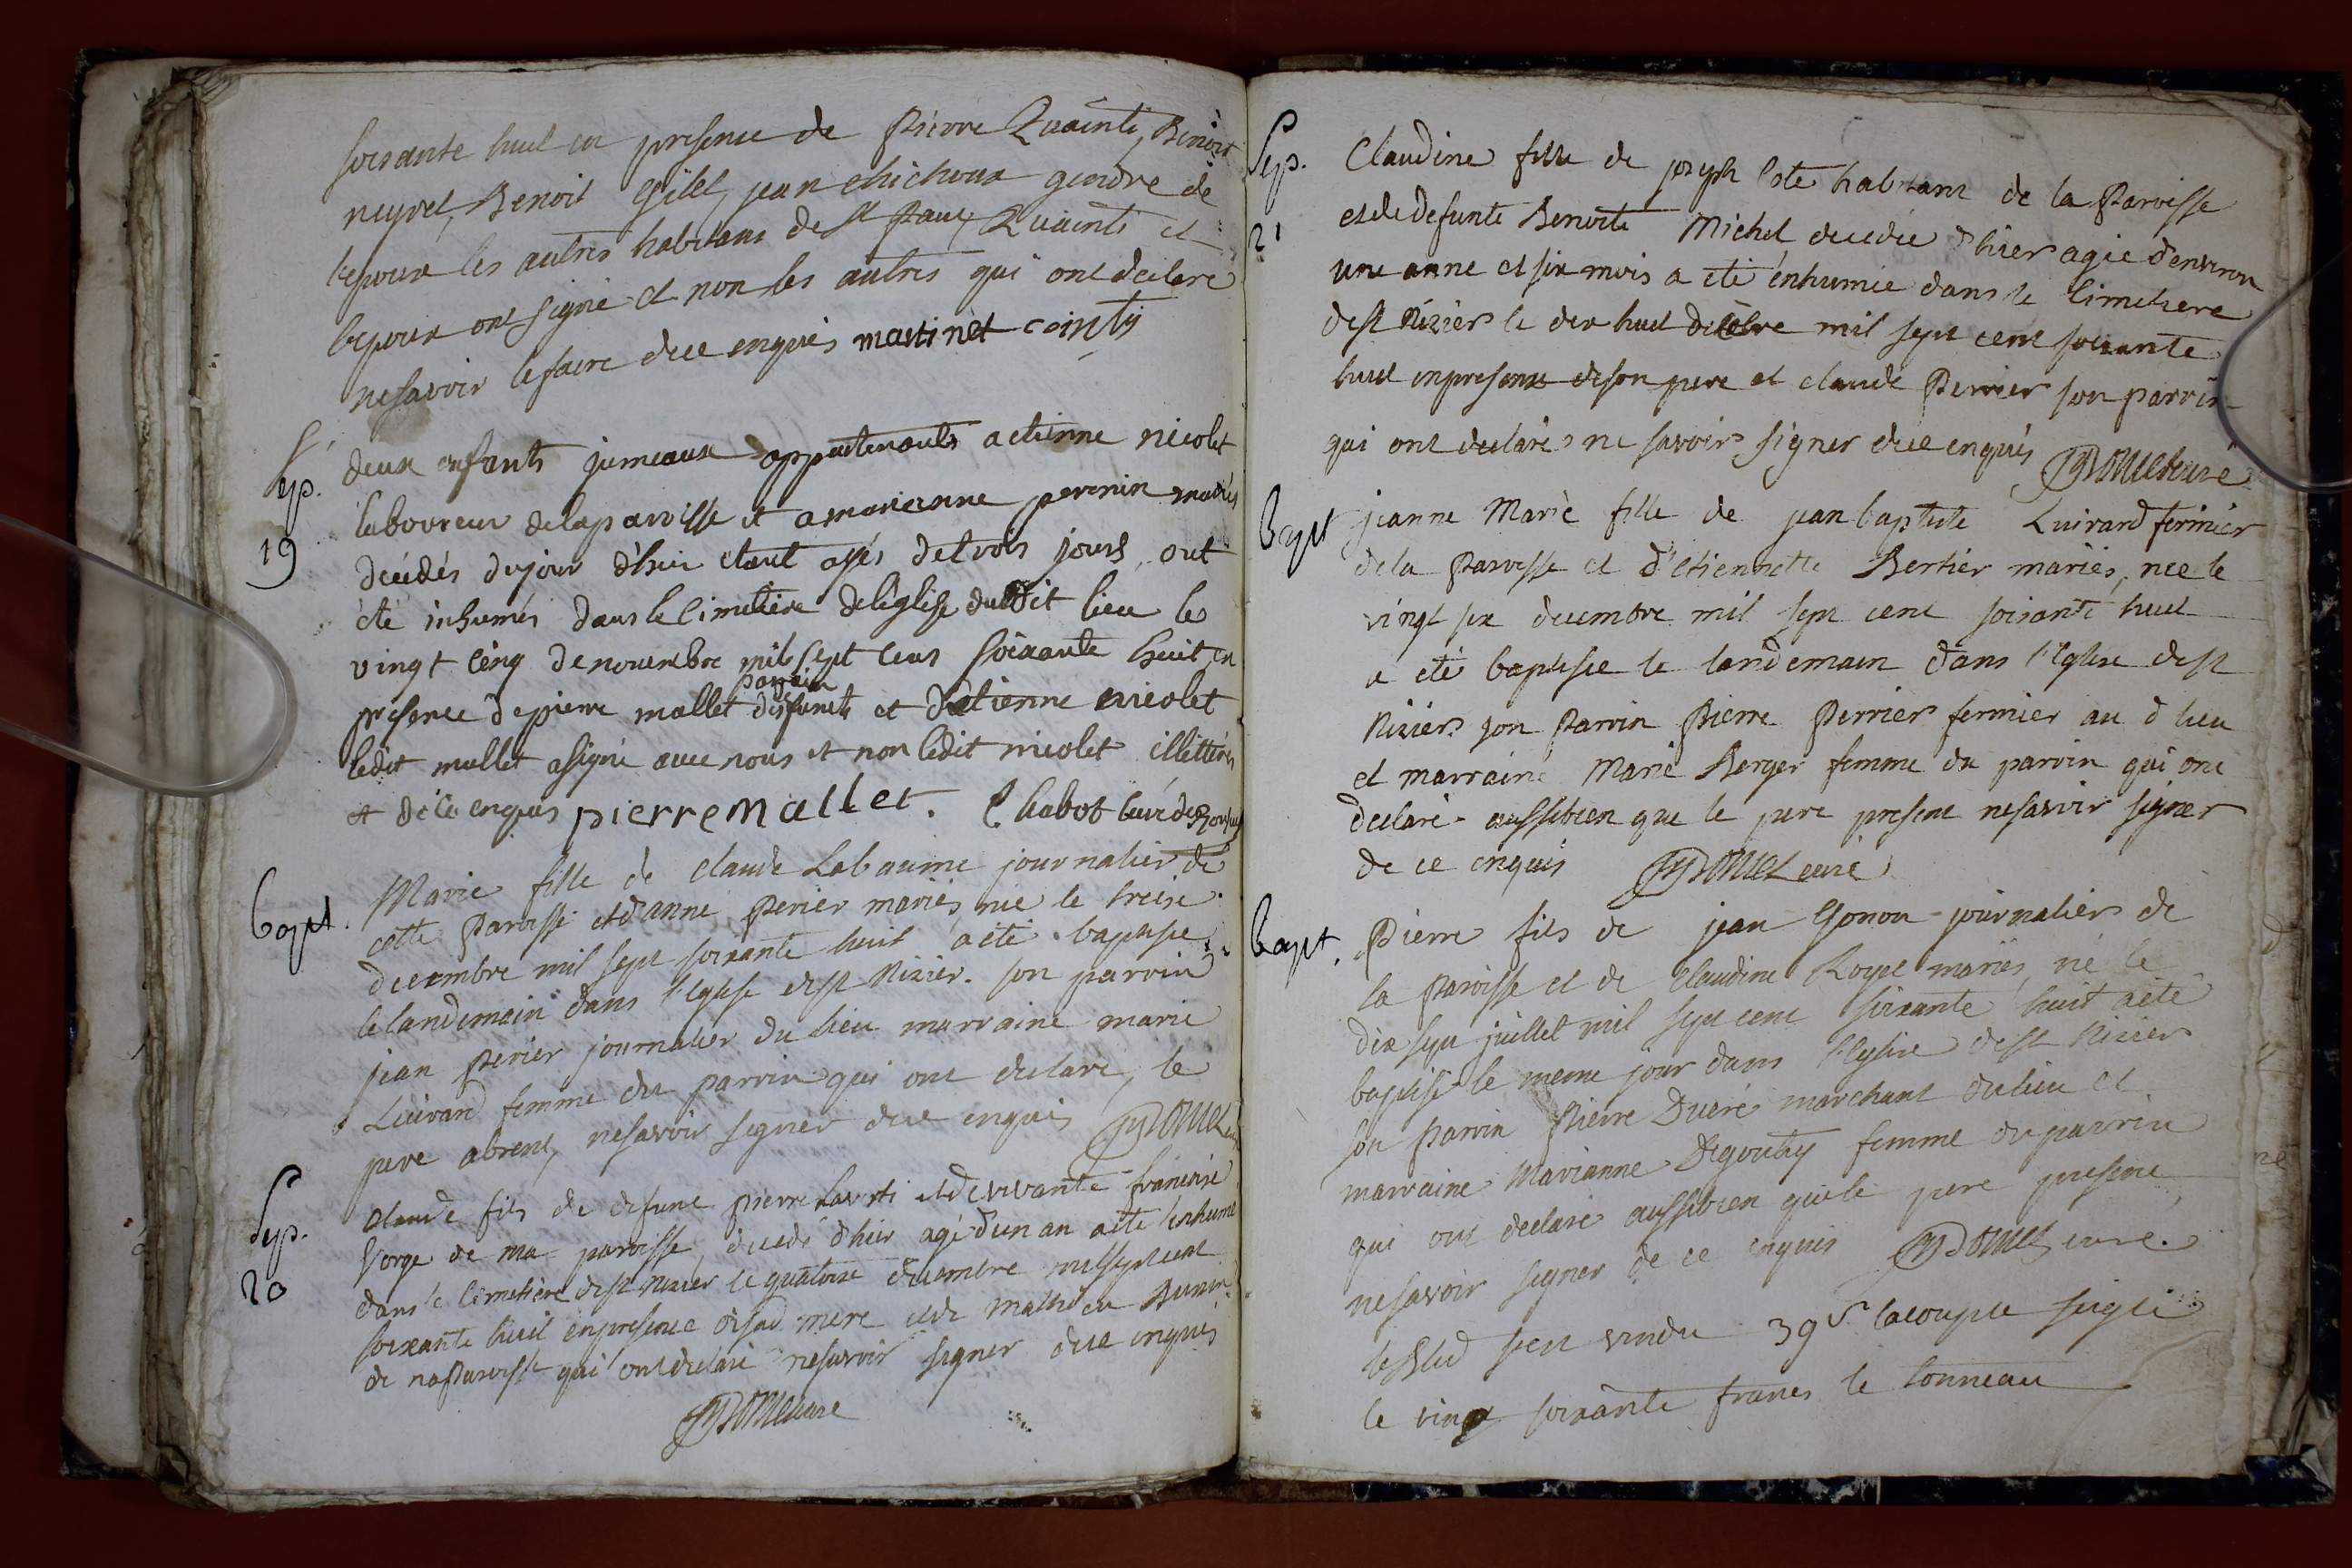 soixante huit en presence de Pierre Quainti, Benoit
neyret, Benoit Gillet, jean chichoux gendre de
lepoux les autres habitans de st Paul, Quainti et
lepoux ont signé et non les autres qui ont declaré
ne savoir le faire dece enquis martinet cointy
Sep.
19
deux enfants jumeaux appartenants a etienne nicolet
laboureur de la paroisse et a marianne perenin mariés
décédés du jour d'hier etant agés de trois jours, ont
été inhumés dans le cimetière de l'église dudit lieu le
vingt cinq de novembre mil sept cens soixante huit en
presence de pierre mallet parrain des funets et d'etienne nicolet
ledit mallet a signé avec nous et non ledit nicolet illettéré
et de ce enquis pierre mallet. Chabot curé de
Bapt.
Marie fille de claude Labaume journalier de
cette Paroisse et d'anne Perier mariés, née le treize
decembre mil sept soixante huit a été baptisée
le landemain dans l'Eglise de st Nizier. son parrin
jean Perier journalier du lieu marraine marie
Luirard femme du parrin qui ont declaré, le
pere absent, ne savoir signer de ce enquis
Sep.
20
claude fils de defunt pierre et de vivante francoise
Vorge de ma paroisse, decedé d'hier agé d'un an a été inhumé
dans le cimetière de st Nizier le quatorze decembre mil sept cent
soixante huit en presence de sad mere et de mathieu
de na Paroisse qui ont declaré ne savoir signer dece enquis
curé
Sep.
21
Claudine fille de joseph Coté habitant de la Paroisse
et de defunte Benoite Michel decedée d'hier agée d'environ
une anné et six mois a été enhumée dans le Cimetiere
de st Nizier le dix huit decebre mil sept cent soixante
huit en presence de son pere et claude Perrier son parrin
qui ont declarés ne savoir signer dece enquis curé
Bapt
jeanne Marie fille de jean baptiste Luirard fermier
de la Paroisse et d'etiennette Bertier mariés, née le
vingt six decembre mil sept cent soixante huit
a été baptisée le landemain dans l'Eglise de st
Nizier son Parrin Pierre Perrier fermier au d lieu
et marraine Marie Berger femme du parrin qui ont
declaré aussi bien que le pere present ne savoir signer
de ce enquis curé
Bapt.
Pierre fils de jean Gonon journalier de
la Paroisse et de Claudine Royet mariés, né le
dix sept juillet mil sept cent soixante huit a été
baptisé le meme jour dans l'Eglise de st Nizier
son Parrin Pierre Dueré marchant du lieu et
marraine Marianne Degoutty femme du parrin
qui ont declaré aussi bien que le pere present
ne savoir signer de ce enquis curé.
le Bled s'est vendu 39 s. la couple seigle
le vin soixante francs le tonneau